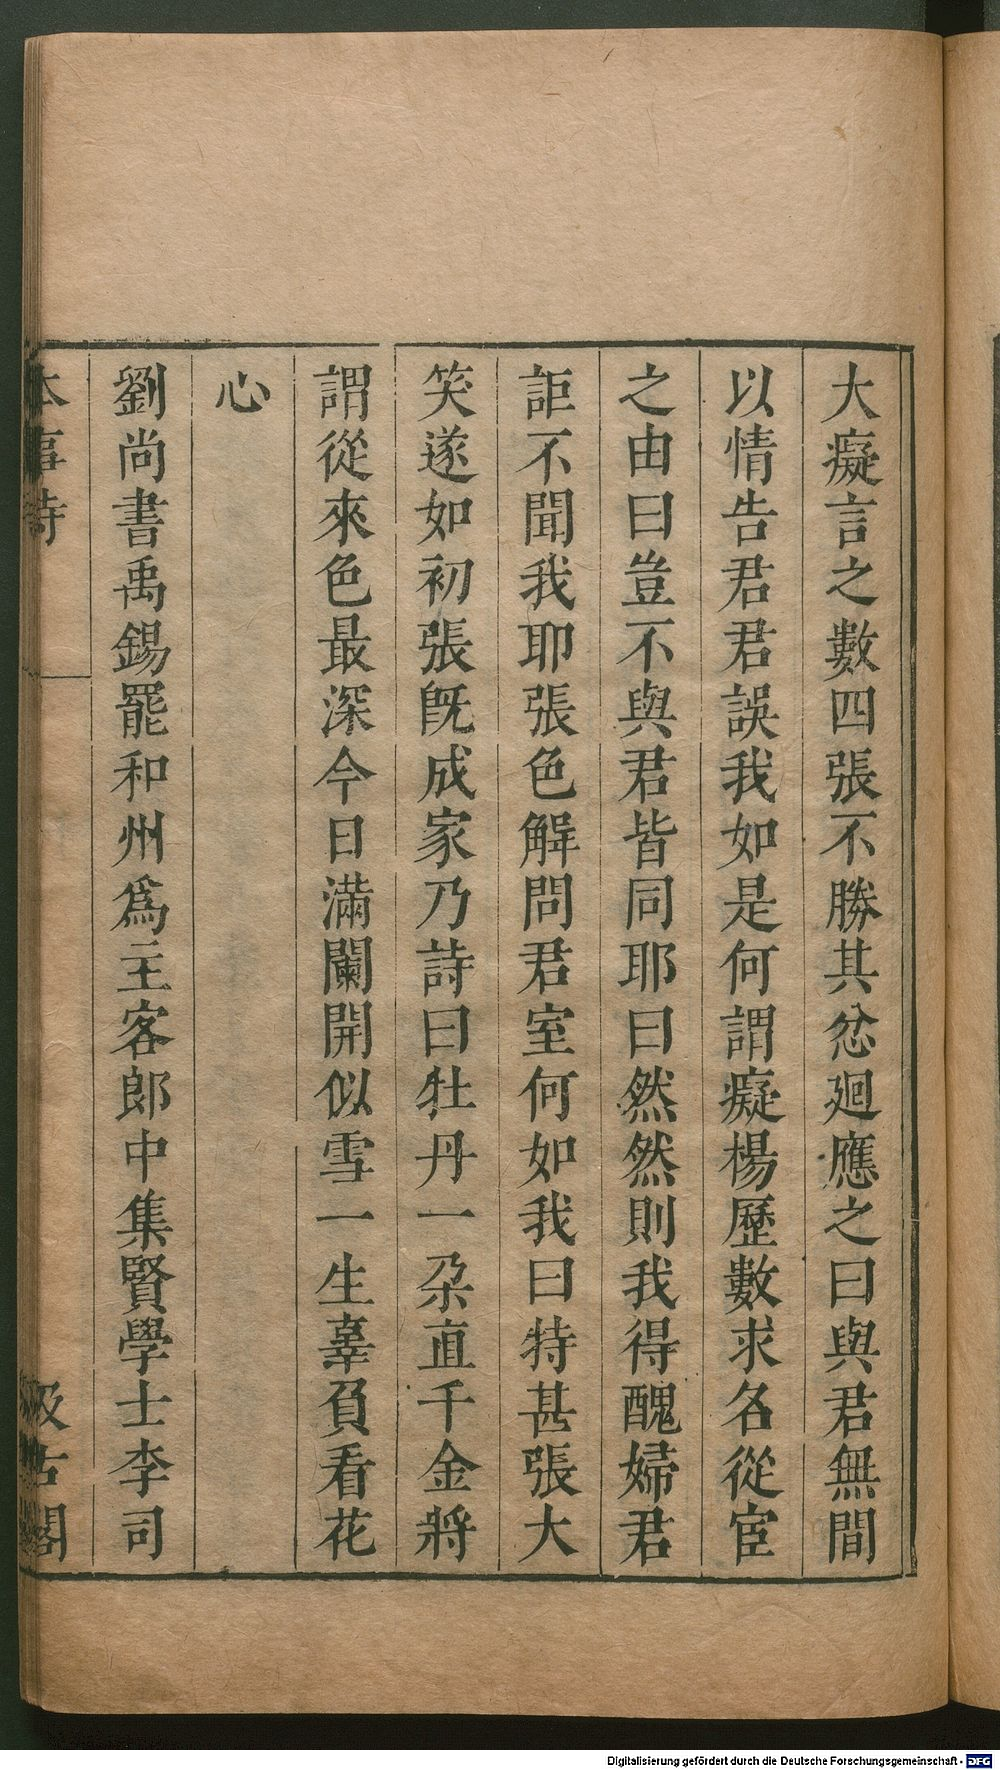 大癡言之數四張不勝其忿廻應之曰與君無間
以情告君君誤我如是何謂癡楊歷數求名從宦
之由曰豈不與君皆同耶曰然然則我得醜婦君
詎不聞我耶張色解問君室何如我曰特甚張大
笑遂如初張旣成家乃詩曰牡丹一朶直千金將
謂從來色最深今日滿闌開似雪一生辜負看花
心
劉尚書禹錫罷和州爲主客郎中集賢學士李司
本事詩
汲古閣
Digitalisierung gefördert durch die Deutsche Forschungsgemeinschaft - DFG